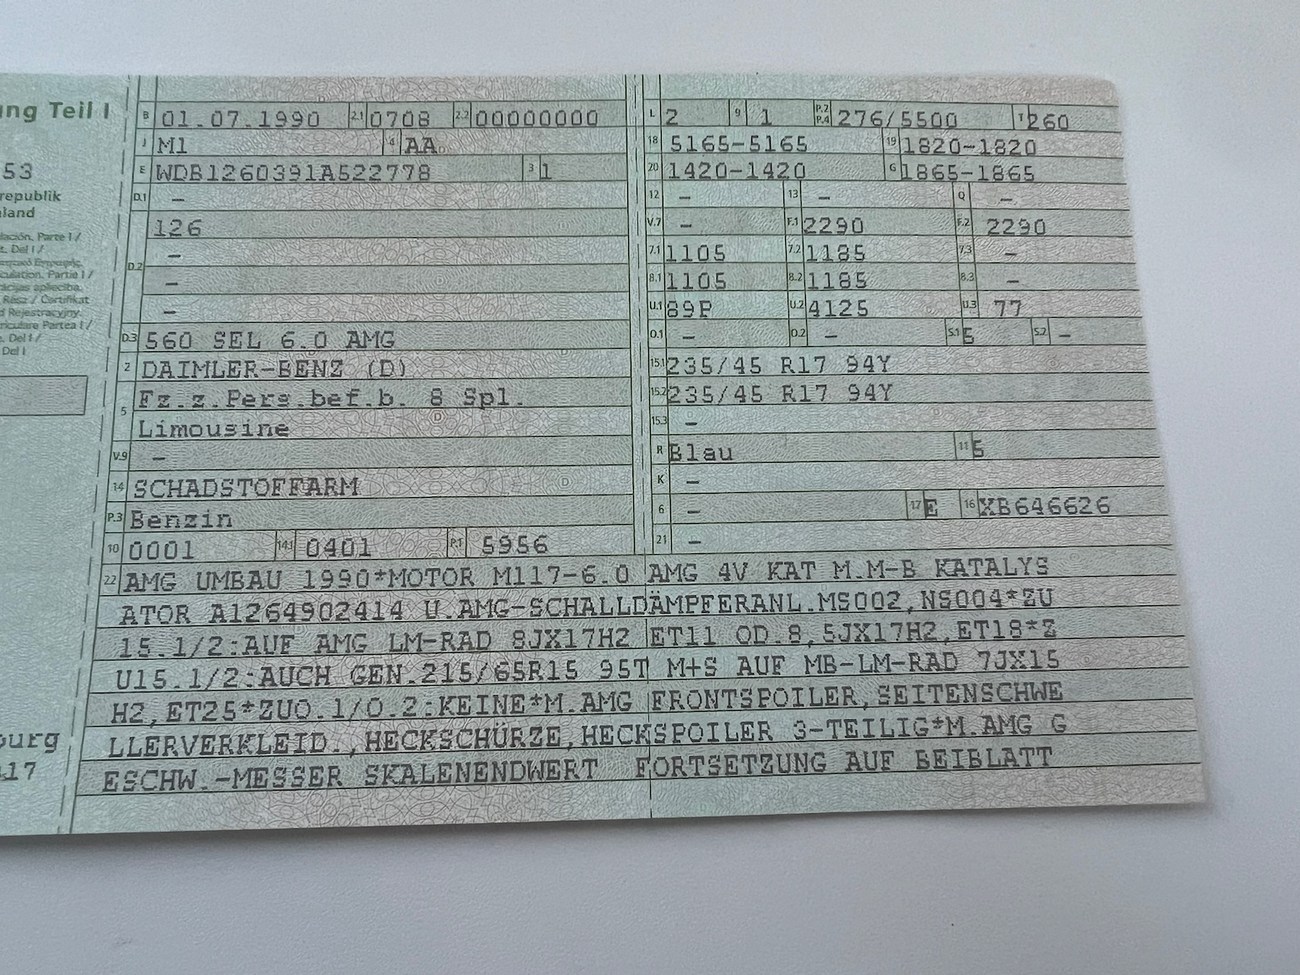 ung Teil I
53
republik
land
lación. Parte I /
t. Del I /
culation. Partie I /
rácijas apliecība.
Rész / Certifikat
d Rejestracyjny.
riculare Partea I /
. Del I /
Del I
ourg
17
B 01.07.1990 2.1 0708 2.2 00000000
J M1 4 AA
E WDB1260391A522778 3 1
D.1 –
D.2 126
–
–
–
D.3 560 SEL 6.0 AMG
2 DAIMLER-BENZ (D)
5 Fz.z.Pers.bef.b. 8 Spl.
Limousine
V.9 –
14 SCHADSTOFFARM
P.3 Benzin
10 0001 14.1 0401 P.1 5956
L 2 9 1 P.2 P.4 276/5500 T 260
18 5165-5165 19 1820-1820
20 1420-1420 G 1865-1865
12 – 13 – Q –
V.7 – F.1 2290 F.2 2290
7.1 1105 7.2 1185 7.3 –
8.1 1105 8.2 1185 8.3 –
U.1 89P U.2 4125 U.3 77
O.1 – O.2 – S.1 5 S.2 –
15.1 235/45 R17 94Y
15.2 235/45 R17 94Y
15.3 –
R Blau 11 5
K –
6 – 17 E 16 XB646626
21 –
22 AMG UMBAU 1990*MOTOR M117-6.0 AMG 4V KAT M.M-B KATALYS
ATOR A1264902414 U.AMG-SCHALLDÄMPFERANL.MS002,NS004*ZU
15.1/2:AUF AMG LM-RAD 8JX17H2 ET11 OD.8,5JX17H2,ET18*Z
U15.1/2:AUCH GEN.215/65R15 95T M+S AUF MB-LM-RAD 7JX15
H2,ET25*ZUO.1/O.2:KEINE*M.AMG FRONTSPOILER,SEITENSCHWE
LLERVERKLEID.,HECKSCHÜRZE,HECKSPOILER 3-TEILIG*M.AMG G
ESCHW.-MESSER SKALENENDWERT FORTSETZUNG AUF BEIBLATT